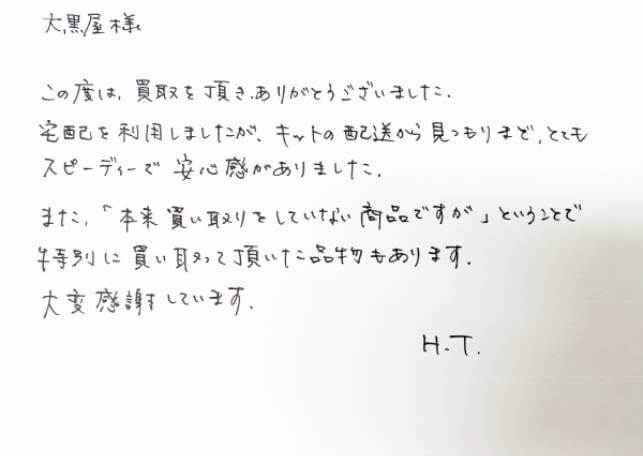 大黒屋様
この度は、買取を頂き、ありがとうございました。
宅配を利用しましたが、キットの配送から見つもりまで、とても
スピーディーで安心感がありました。
また、「本来買い取りをしていない商品ですが」ということで
特別に買い取って頂いた品物もあります。
大変感謝しています。
H.T.